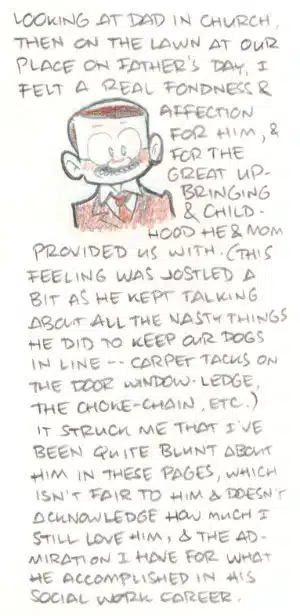 LOOKING AT DAD IN CHURCH,
THEN ON THE LAWN AT OUR
PLACE ON FATHER'S DAY, I
FELT A REAL FONDNESS &
AFFECTION
FOR HIM, &
FOR THE
GREAT UP-
BRINGING
& CHILD-
HOOD HE & MOM
PROVIDED US WITH. (THIS
FEELING WAS JOSTLED A
BIT AS HE KEPT TALKING
ABOUT ALL THE NASTY THINGS
HE DID TO KEEP OUR DOGS
IN LINE -- CARPET TACKS ON
THE DOOR WINDOW-LEDGE,
THE CHOKE-CHAIN, ETC.)
IT STRUCK ME THAT I'VE
BEEN QUITE BLUNT ABOUT
HIM IN THESE PAGES, WHICH
ISN'T FAIR TO HIM & DOESN'T
ACKNOWLEDGE HOW MUCH I
STILL LOVE HIM, & THE AD-
MIRATION I HAVE FOR WHAT
HE ACCOMPLISHED IN HIS
SOCIAL WORK CAREER.